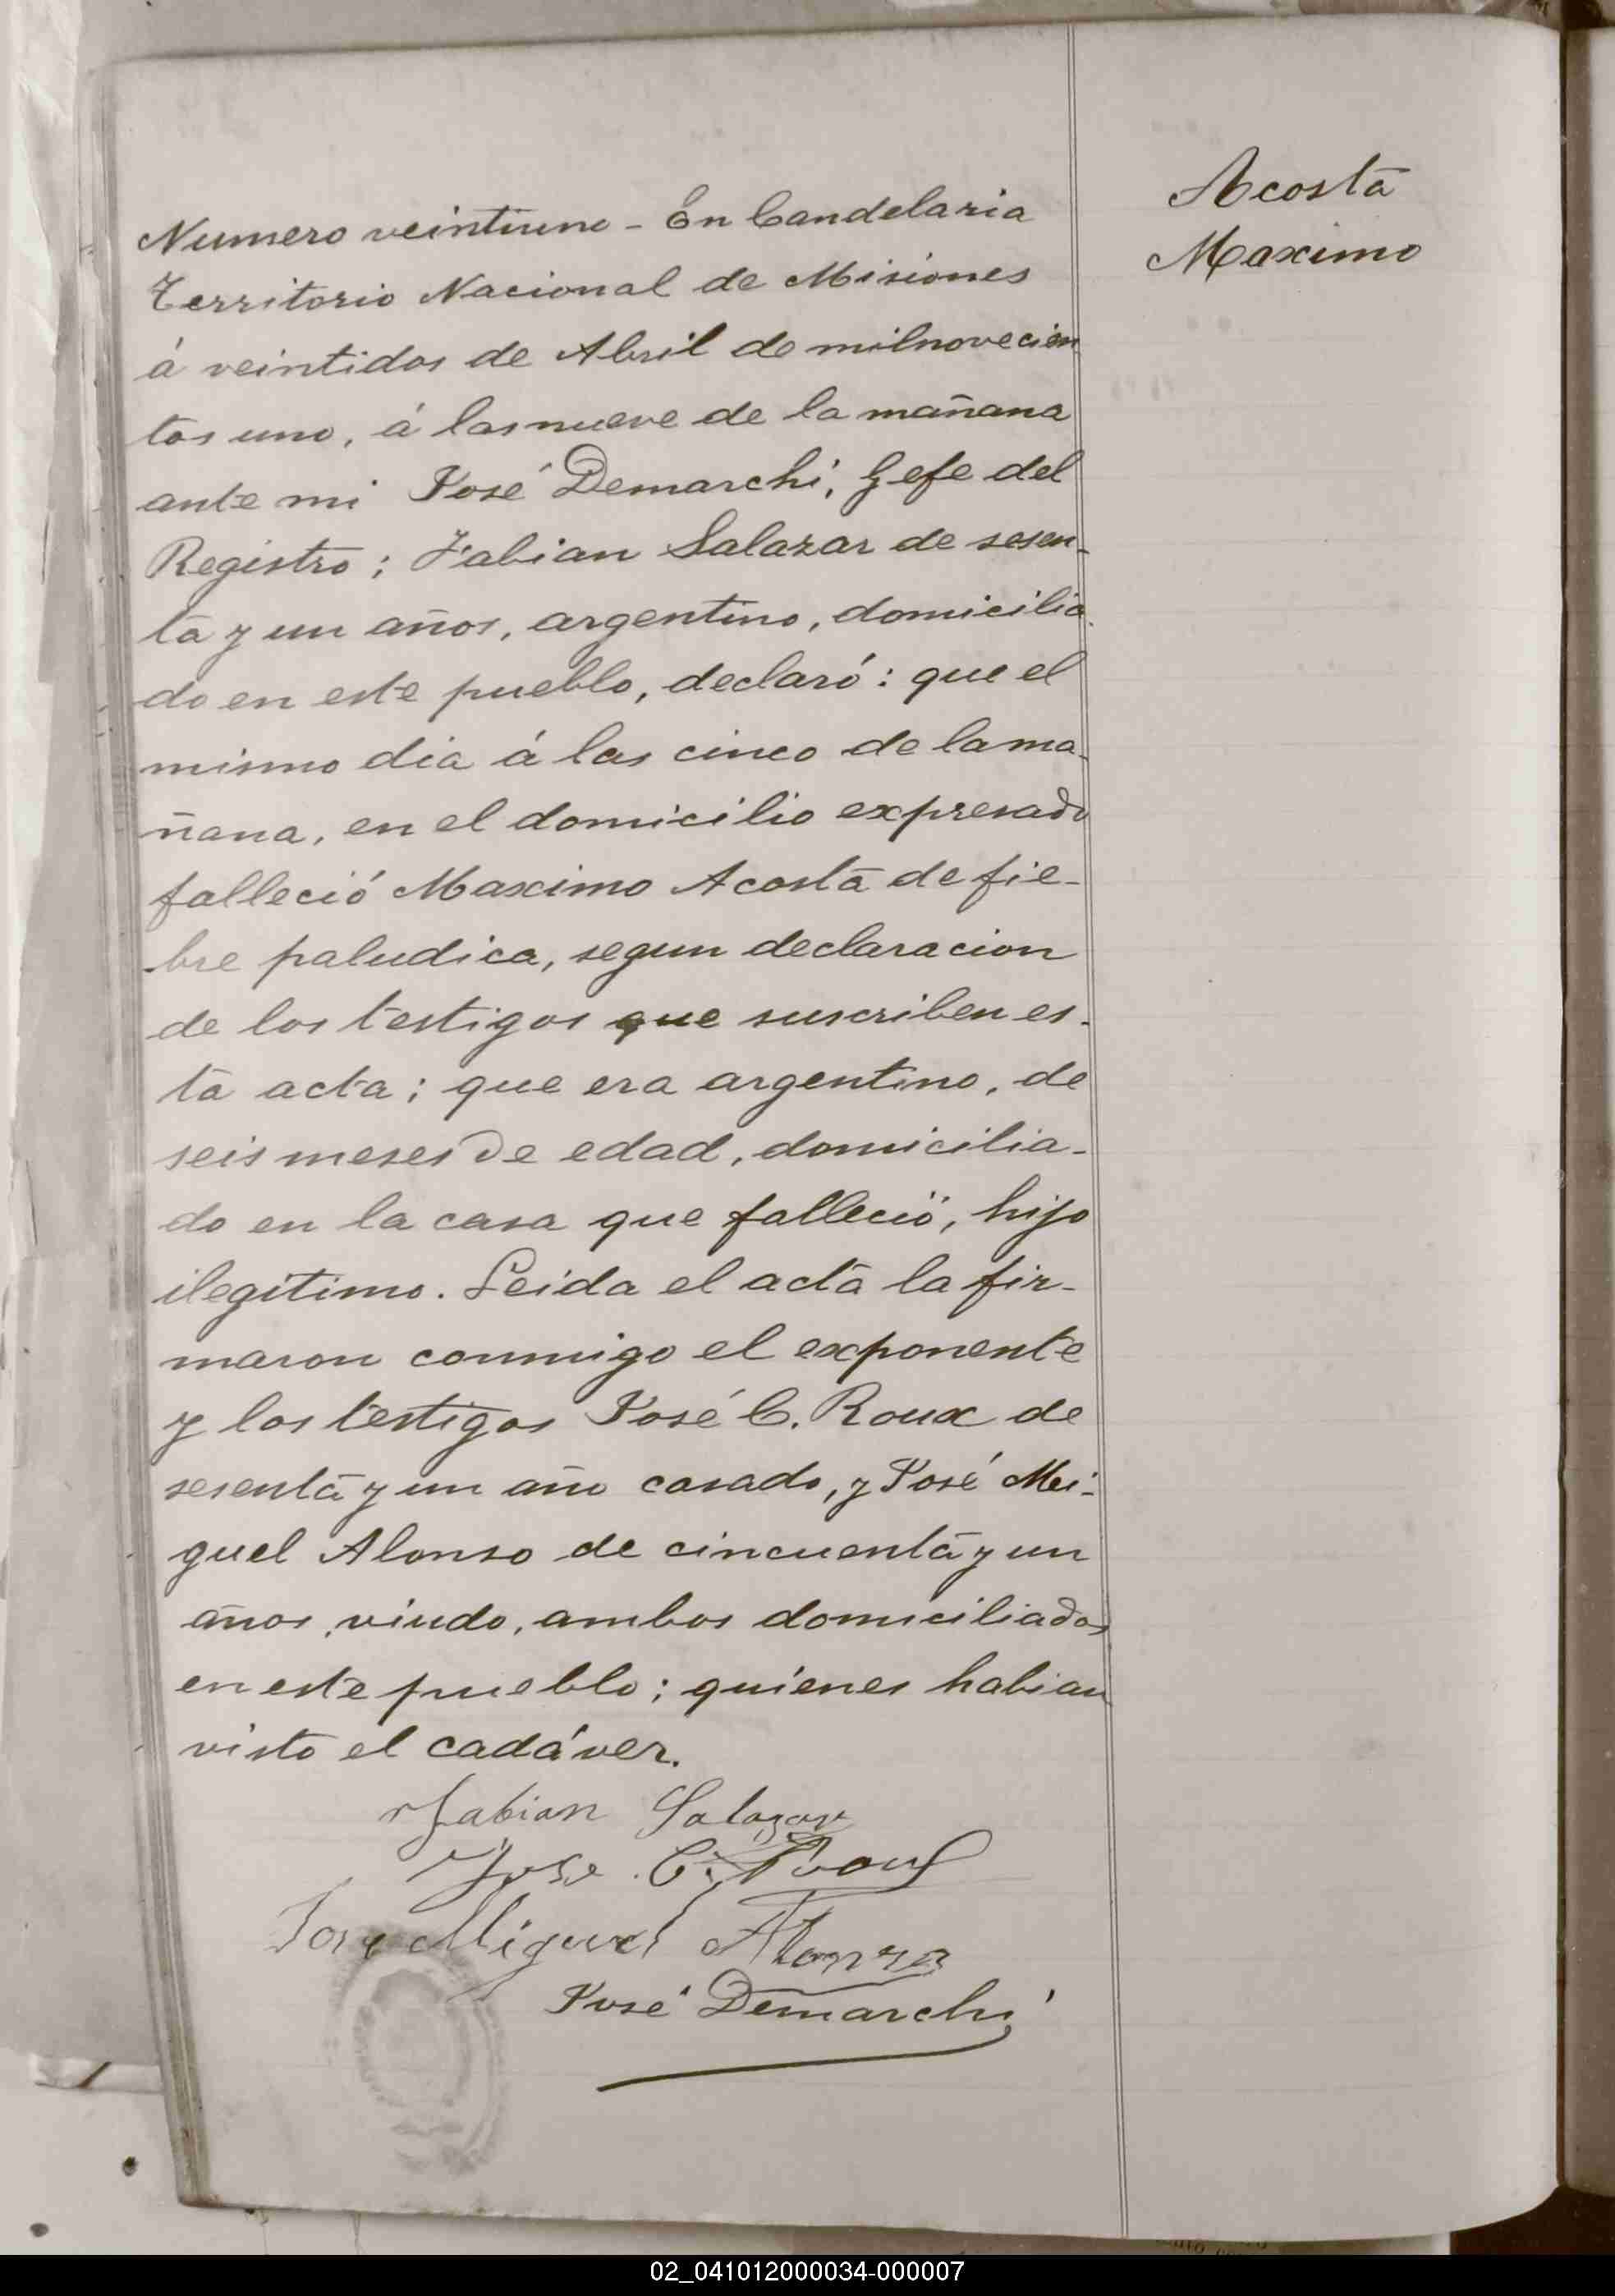 Acosta
Maximo
Numero veintiuno - En Candelaria
Territorio Nacional de Misiones
á veintidos de Abril de milnovecien
tos uno, á las nueve de la mañana
ante mi José Demarchi, Gefe del
Registro; Fabian Salazar de sesen-
ta y un años, argentino, domicilia-
do en este pueblo, declaró: que el
mismo dia á las cinco de la ma-
ñana, en el domicilio expresado
falleció Maximo Acosta de fie-
bre paludica, segun declaracion
de los testigos que suscriben es-
ta acta; que era argentino, de
seis meses de edad, domicilia-
do en la casa que falleció, hijo
ilegitimo. Leida el acta la fir-
maron conmigo el exponente
y los testigos José C. Roux de
sesenta y un año casado, y José Mi-
guel Alonso de cincuenta y un
años, viudo, ambos domiciliados
en este pueblo; quienes habian
visto el cadáver.
Fabian Salazar
Jose C. Roux
Jose Miguel Alonzo
José Demarchi
02_041012000034-000007